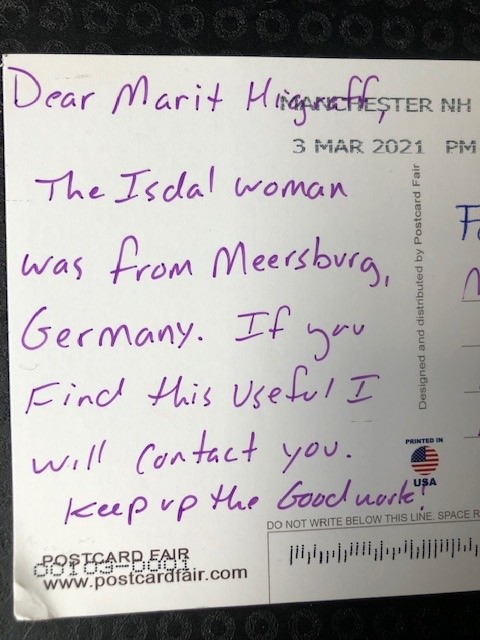 Dear Marit Higraff,
MANCHESTER NH
3 MAR 2021 PM
The Isdal woman
was from Meersburg,
Germany. If you
Find this Useful I
will contact you.
Keep up the Good work!
Designed and distributed by Postcard Fair
PRINTED IN
USA
DO NOT WRITE BELOW THIS LINE. SPACE R
POSTCARD FAIR
www.postcardfair.com